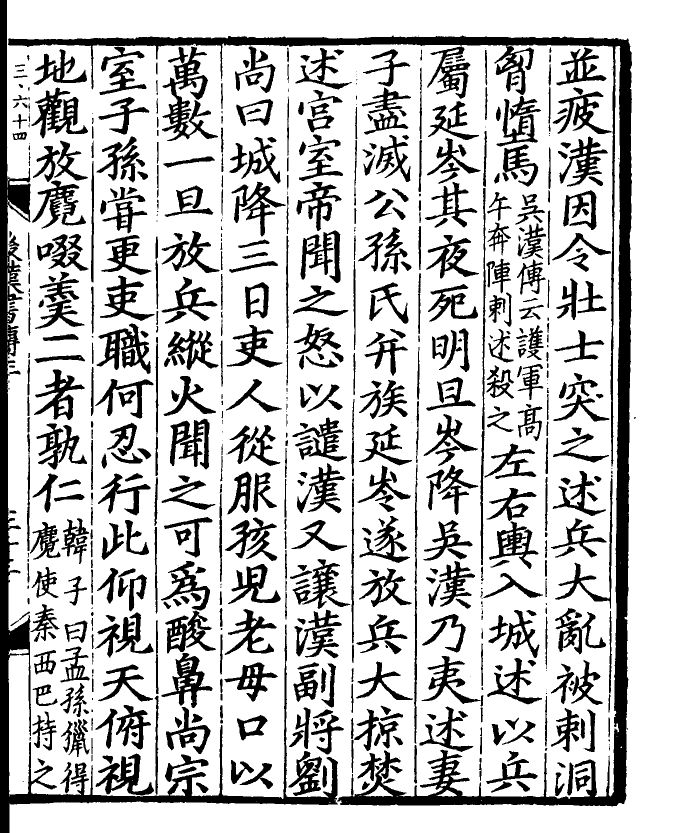 並疲漢因令壯士突之述兵大亂被刺洞
胷墯馬吳漢傳云護軍髙午奔陣刺述殺之左右輿入城述以兵
屬延岑其夜死明旦岑降吳漢乃夷述妻
子盡滅公孫氏并族延岑遂放兵大掠焚
述宫室帝聞之怒以譴漢又讓漢副將劉
尚曰城降三日吏人從服孩兒老母口以
萬數一旦放兵縱火聞之可爲酸鼻尚宗
室子孫嘗更吏職何忍行此仰視天俯視
地觀放麑啜羹二者孰仁韓子曰孟孫獵得麑使秦西巴持之
三、六十四
後漢書傳三